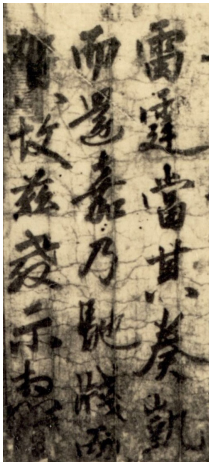 雷霆當其奏凱
而還嘉乃馳牋
故茲發示想